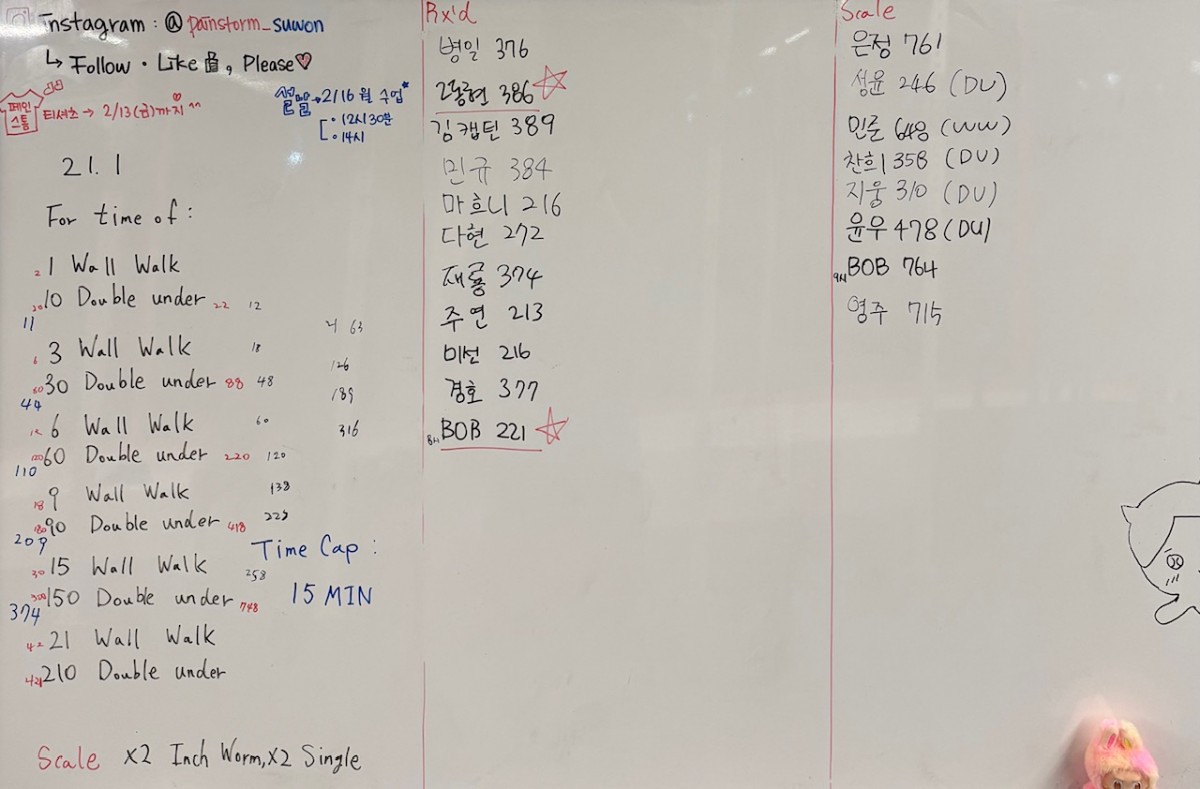 Instagram : @ painstorm_suwon
↳ Follow · Like, Please♡
페인
스톰
티셔츠 → 2/13(금)까지♡^^
설날 → 2/16 월 수업*
· 12시 30분
· 14시
21.1
For time of :
2 1 Wall Walk
20 10 Double under 22 12
11
6 3 Wall Walk 18
60 30 Double under 88 48
44
12 6 Wall Walk 60
120 60 Double under 220 120
110
18 9 Wall Walk 138
180 90 Double under 418 229
209
30 15 Wall Walk 258
300 150 Double under 748
374
42 21 Wall Walk
420 210 Double under
63
126
189
316
Time Cap :
15 MIN
Scale x2 Inch Worm, x2 Single
Rx'd
병일 376
386
김캡틴 389
민규 384
마흐니 216
다현 272
재룡 374
주연 213
미선 216
경호 377
8시 BOB 221
Scale
은정 761
성윤 246 (DU)
민준 (WW)
찬희 358 (DU)
지웅 310 (DU)
윤우 478 (DU)
9시 BOB 764
영주 715